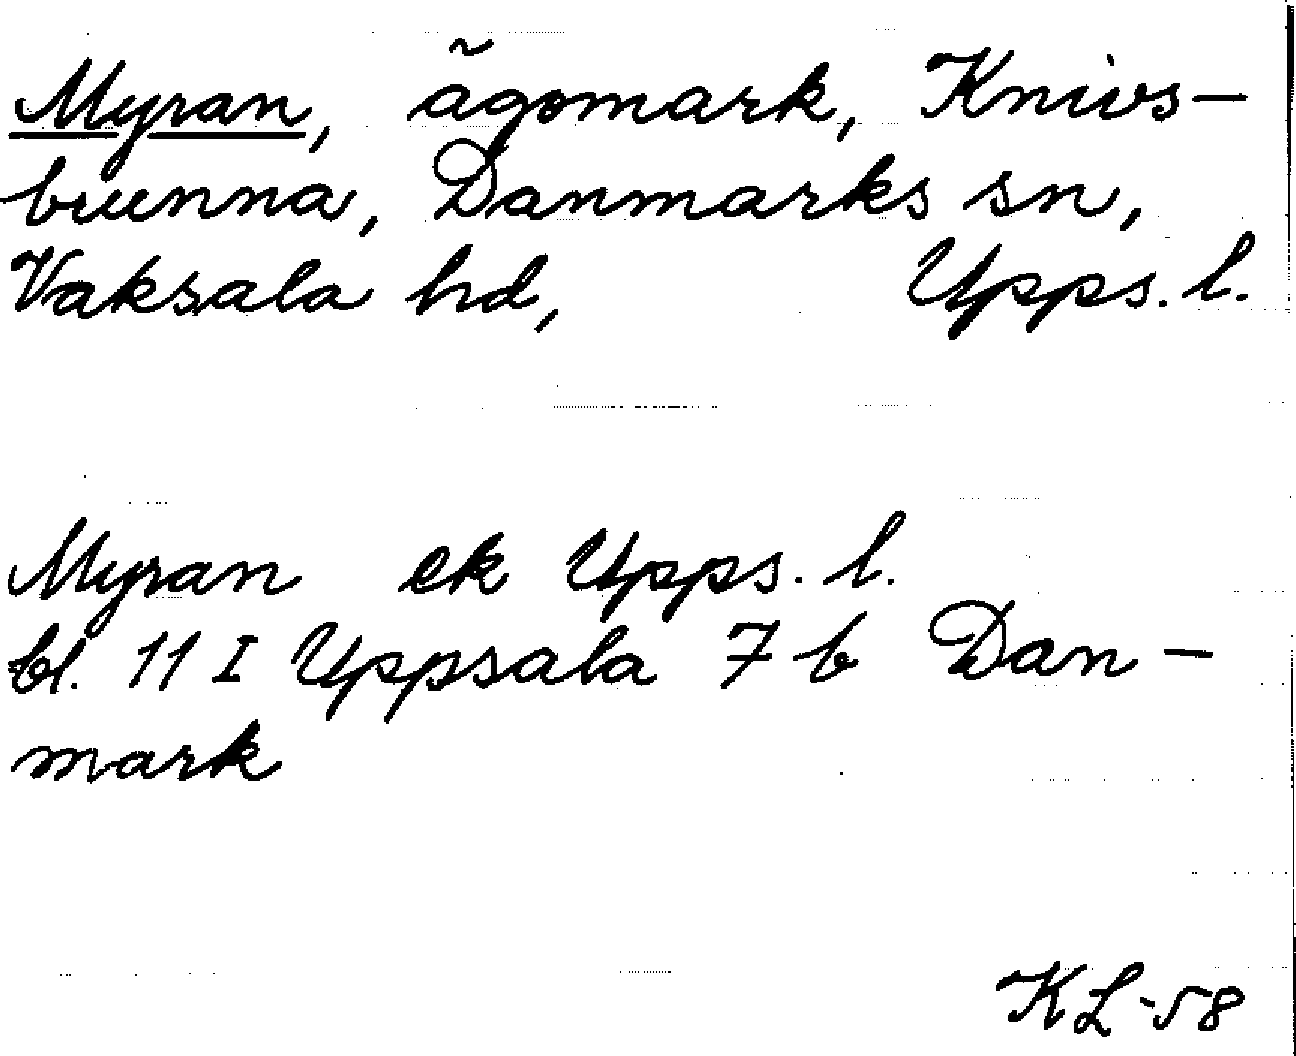 Myran, ägomark, Knivs-
brunna, Danmarks sn,
Vaksala hd, Upps. l.
Myran ek Upps. l.
bl. 11 I Uppsala 7 b Dan-
mark
KL-58